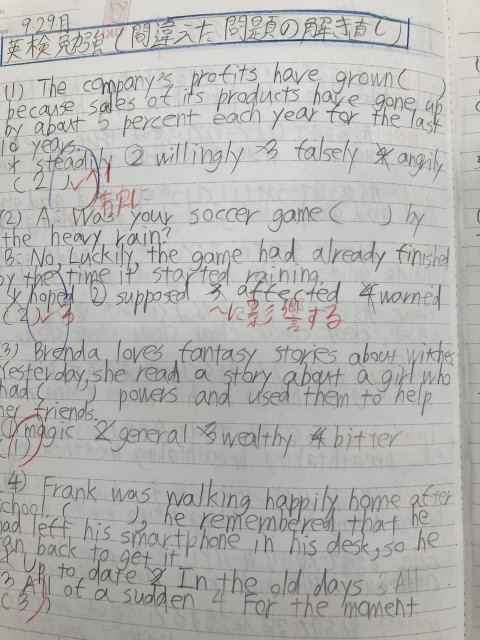 9.29月
英検勉強(間違えた問題の解き直し)
(1) The company's profits have grown( )
because sales of its products have gone up
by about 5 percent each year for the last
10 years.
steadily ② willingly 3 falsely 4 angrily
(2) 1
(2) A: Was your soccer game ( ) by
the heavy rain?
B: No. Luckily, the game had already finished
by the time it started raining.
hoped ② supposed 3 affected 4 warned
(2) 3 〜に影響する
(3) Brenda loves fantasy stories about witches.
Yesterday, she read a story about a girl who
had ( ) powers and used them to help
her friends.
① magic 2 general 3 wealthy 4 bitter
(1)
4) Frank was walking happily home after
school. ( ), he remembered that he
had left his smartphone in his desk, so he
ran back to get it.
Up to date 2 In the old days
3 All of a sudden 4 For the moment
(3)